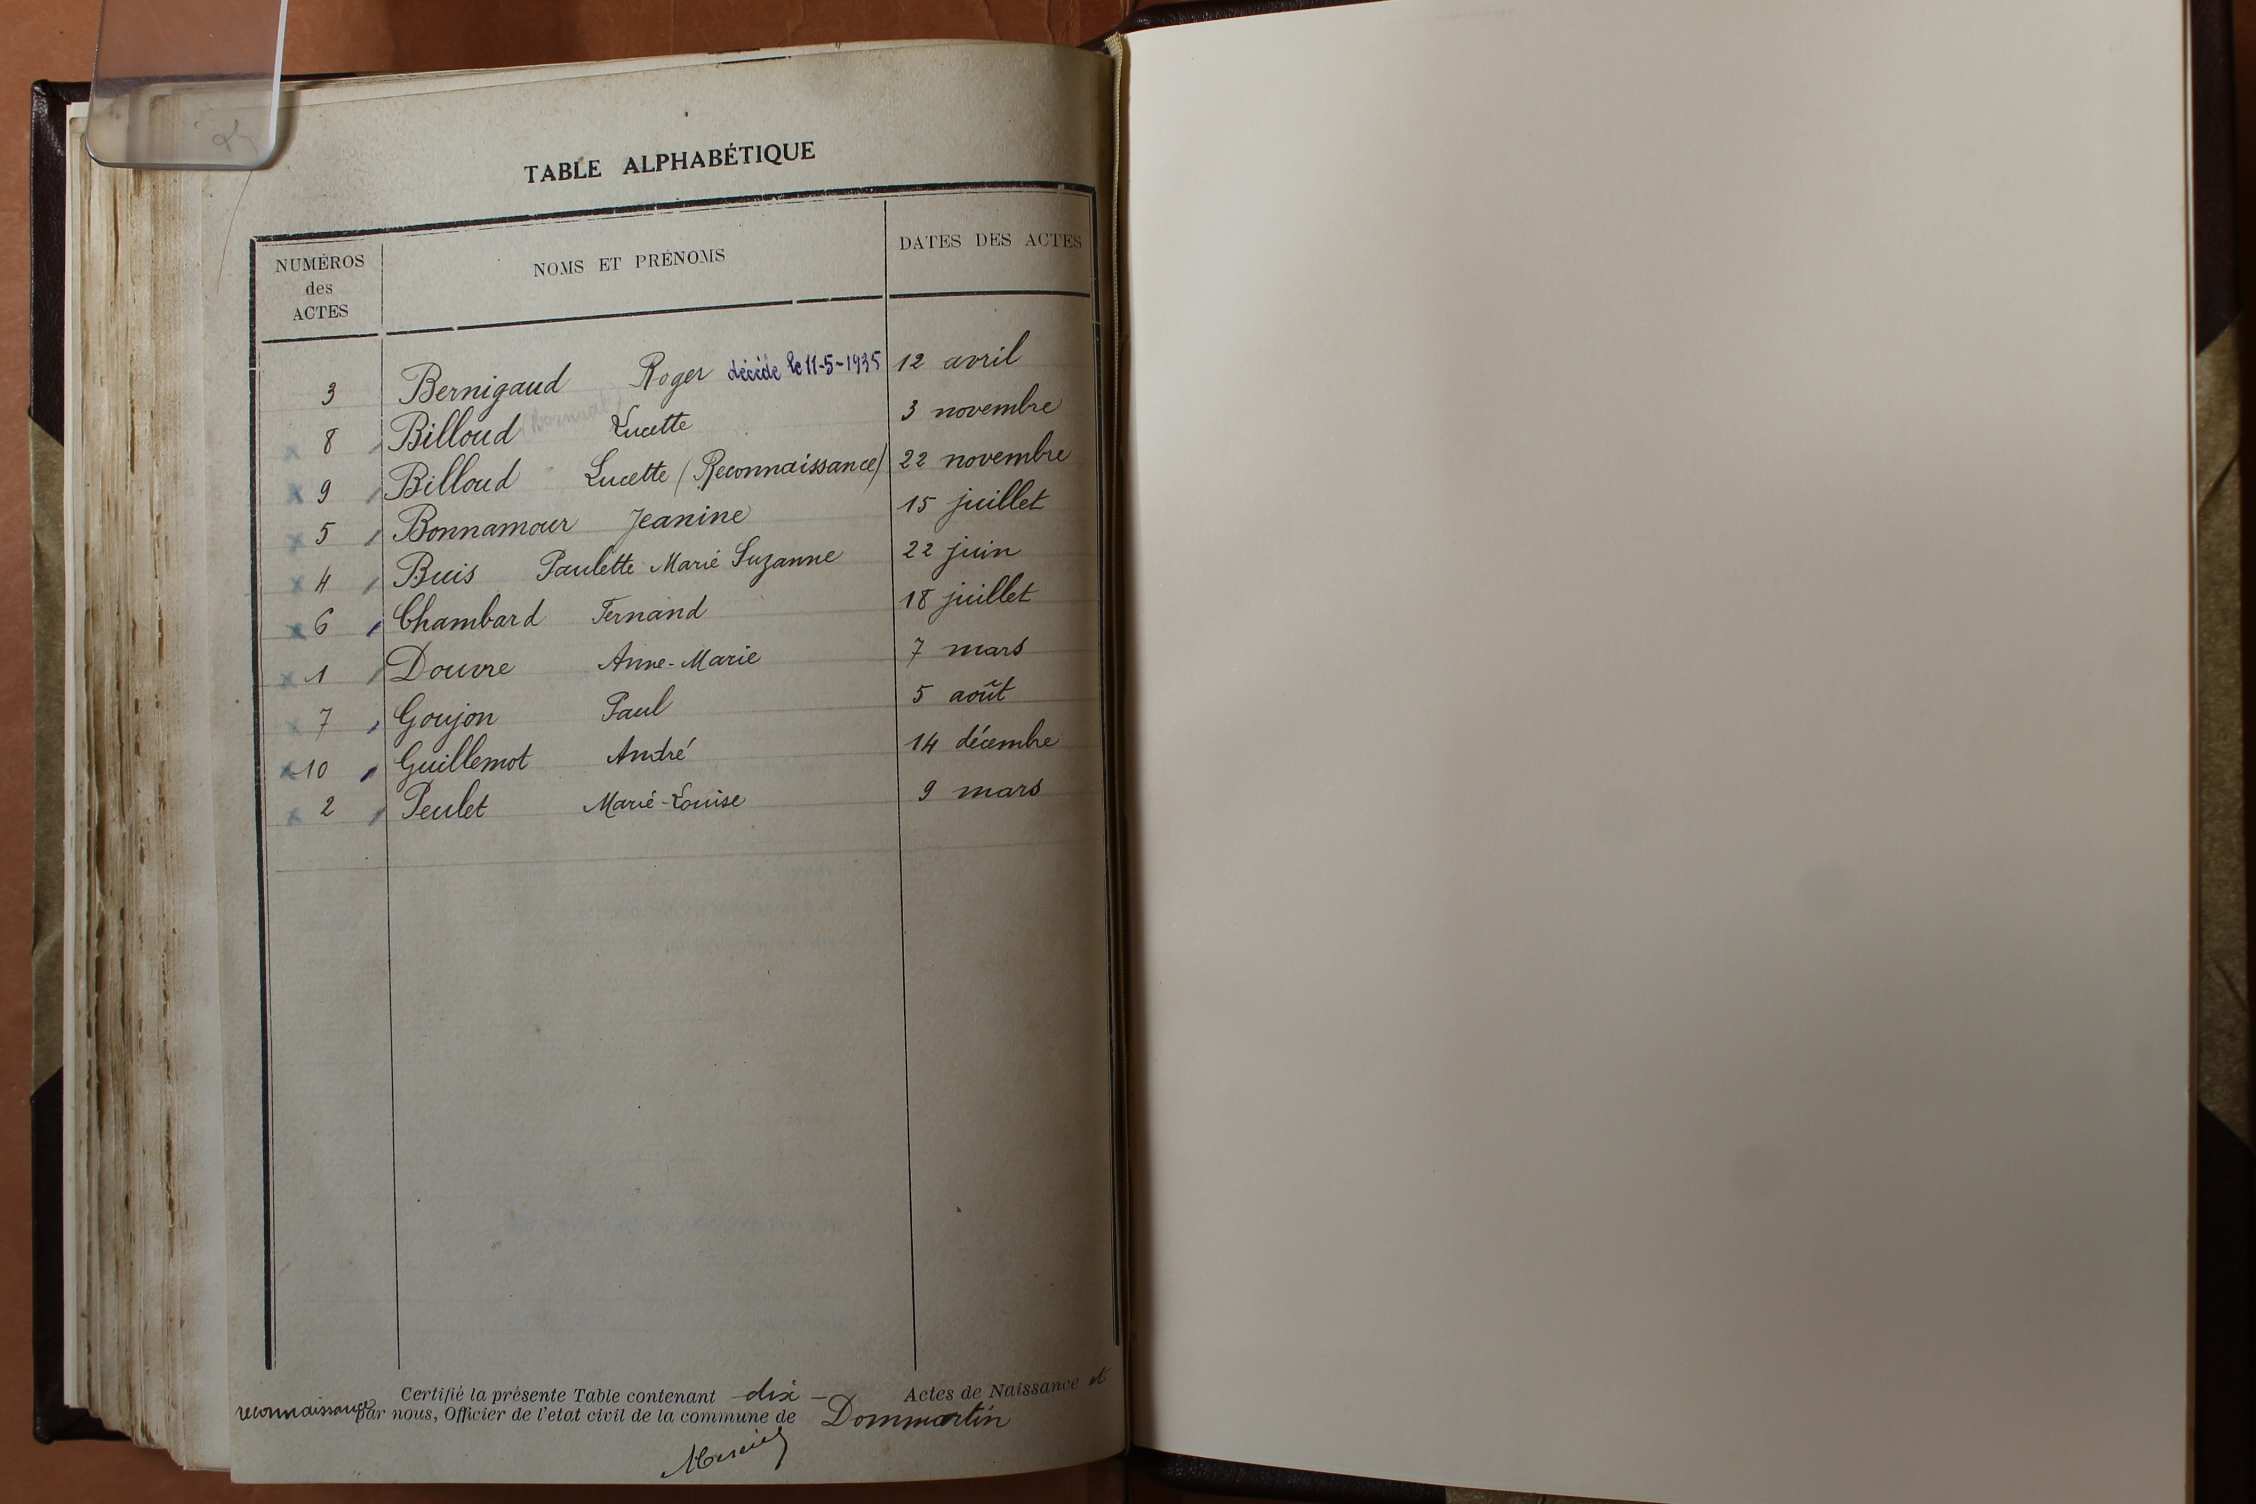 TABLE ALPHABÉTIQUE
NUMÉROS
des
ACTES
NOMS ET PRÉNOMS
DATES DES ACTES
3 Bernigaud Roger décédé le 11-5-1935 12 avril
8 Billoud Lucette 3 novembre
9 Billoud Lucette (Reconnaissance) 22 novembre
5 Bonnamour Jeanine 15 juillet
4 Buis Paulette Marie Suzanne 22 juin
6 Chambard Fernand 18 juillet
1 Douvre Anne-Marie 7 mars
7 Goujon Paul 5 août
10 Guillemot André 14 décembre
2 Peulet Marie-Louise 9 mars
Certifié la présente Table contenant dix — Actes de Naissance et
reconnaissance par nous, Officier de l'etat civil de la commune de Dommartin